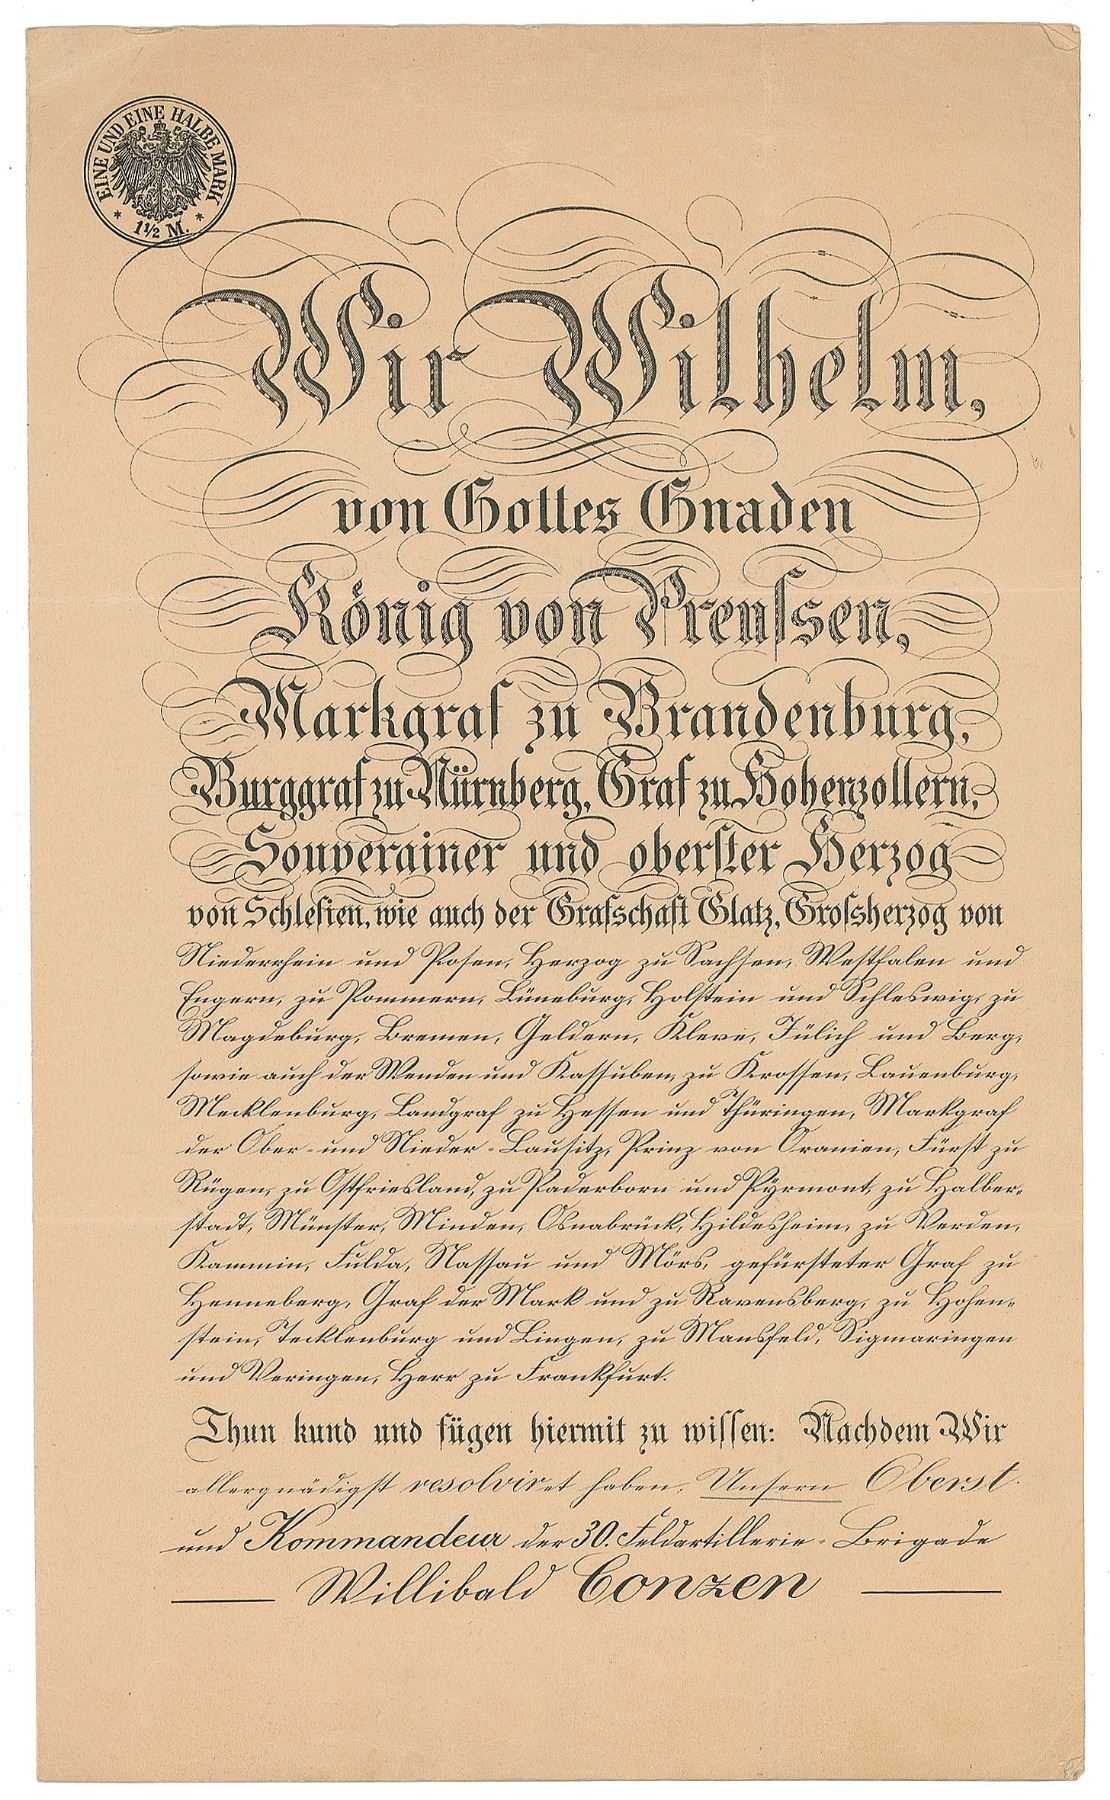 EINE UND EINE HALBE MARK
* 1½ M. *
Wir Wilhelm,
von Gottes Gnaden
König von Preussen,
Markgraf zu Brandenburg,
Burggraf zu Nürnberg, Graf zu Hohenzollern,
Souverainer und oberster Herzog
von Schlesien, wie auch der Grafschaft Glatz, Grossherzog von
Niederrhein und Posen, Herzog zu Sachsen, Westfalen und
Engern, zu Pommern, Lüneburg, Holstein und Schleswig, zu
Magdeburg, Bremen, Geldern, Kleve, Jülich und Berg,
sowie auch der Wenden und Kassuben, zu Krossen, Lauenburg,
Mecklenburg, Landgraf zu Hessen und Thüringen, Markgraf
der Ober- und Nieder-Lausitz, Prinz von Oranien, Fürst zu
Rügen, zu Ostfriesland, zu Paderborn und Pyrmont, zu Halber-
stadt, Münster, Minden, Osnabrück, Hildesheim, zu Verden,
Kammin, Fulda, Nassau und Mörs, gefürsteter Graf zu
Henneberg, Graf der Mark und zu Ravensberg, zu Hohen-
stein, Tecklenburg und Lingen, zu Mansfeld, Sigmaringen
und Veringen, Herr zu Frankfurt.
Thun kund und fügen hiermit zu wissen: Nachdem Wir
allergnädigst resolviret haben, Unsern Oberst
und Kommandeur der 30. Feldartillerie-Brigade
Willibald Conzen